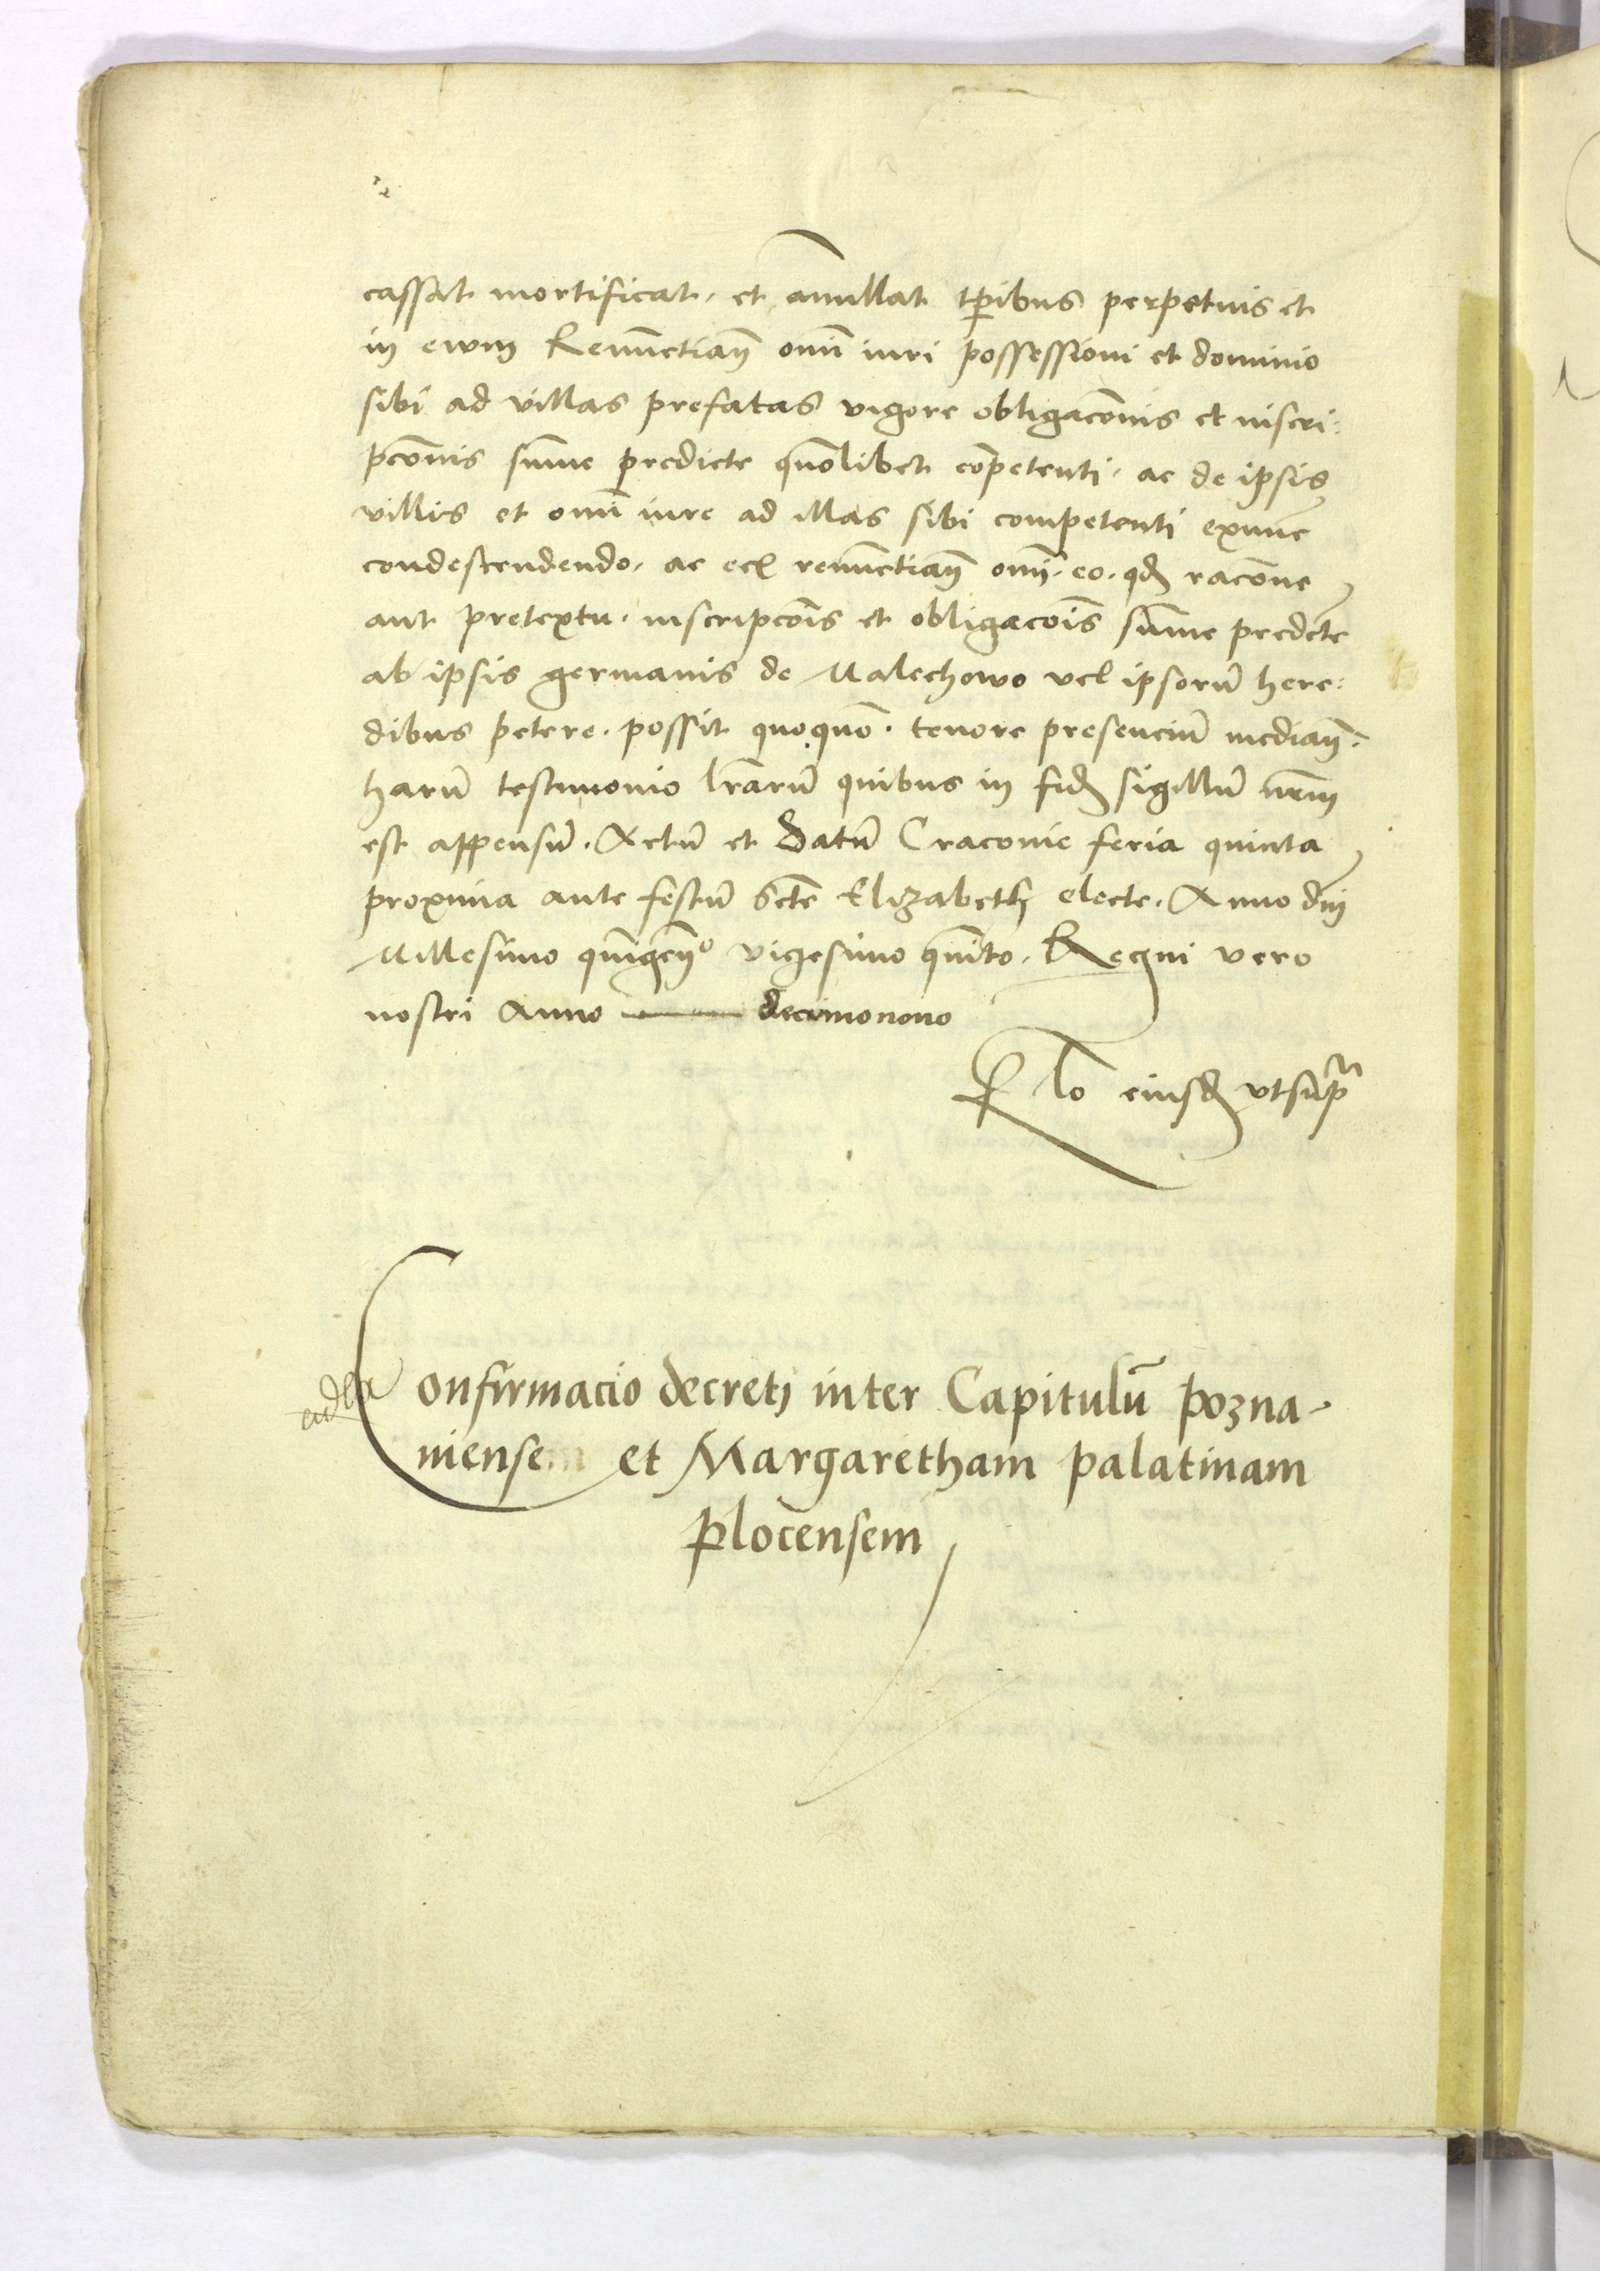 cassat mortificat. et anullat tp̱ibus perpetuis et
in ewm Renūctiaṉ omī iuri possessioni et dominio
sibi ad villas prefatas vigore obligacōnis et inscri:
pcōnis sūme predicte quōlibet cōpetenti. ac de ipsis
villis et omī iure ad illas sibi competenti exnūc
condescendendo. ac ecī renūctiaṉ omī. eo. qđ racōne
aut pretextu. inscripcōis et obligacōis sūme predcte
ab ipsis germanis de Malechowo vel ipsorū here:
dibus petere. possit quoquō. tenore presenciū mediaṉ.
harū testimonio lrarū quibus in fiđ sigillū nrm
est appensū. Actū et Datū Cracovie feria quinta
proxima ante festū Scte Elizabeth electe. Anno dni
Millesimo quīgenᵒ vigesimo quīto. Regni vero
nostri Anno decimonono
Rlo eiusđ vtsupᵃ
Confirmacio decreti inter Capitulū pozna-
niensem et Margaretham palatinam
plocensem